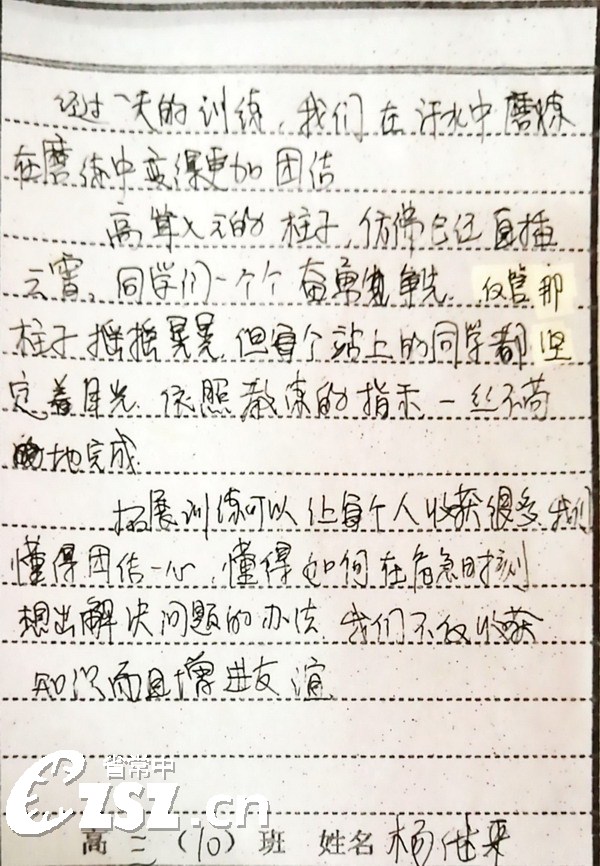 经过一天的训练，我们在汗水中磨炼
在磨练中变得更加团结
高耸入云的柱子，仿佛已经直插
云霄，同学们一个个奋勇争先 仅管那
柱子摇摇晃晃 但每个站上的同学都坚
定着目光 依照教练的指示 一丝不苟
地完成
拓展训练可以让每个人收获很多 我们
懂得团结一心，懂得如何在危急时刻
想出解决问题的办法 我们不仅收获
知识而且增进友谊
省常中
CZSZ.cn
高三（10）班 姓名 杨